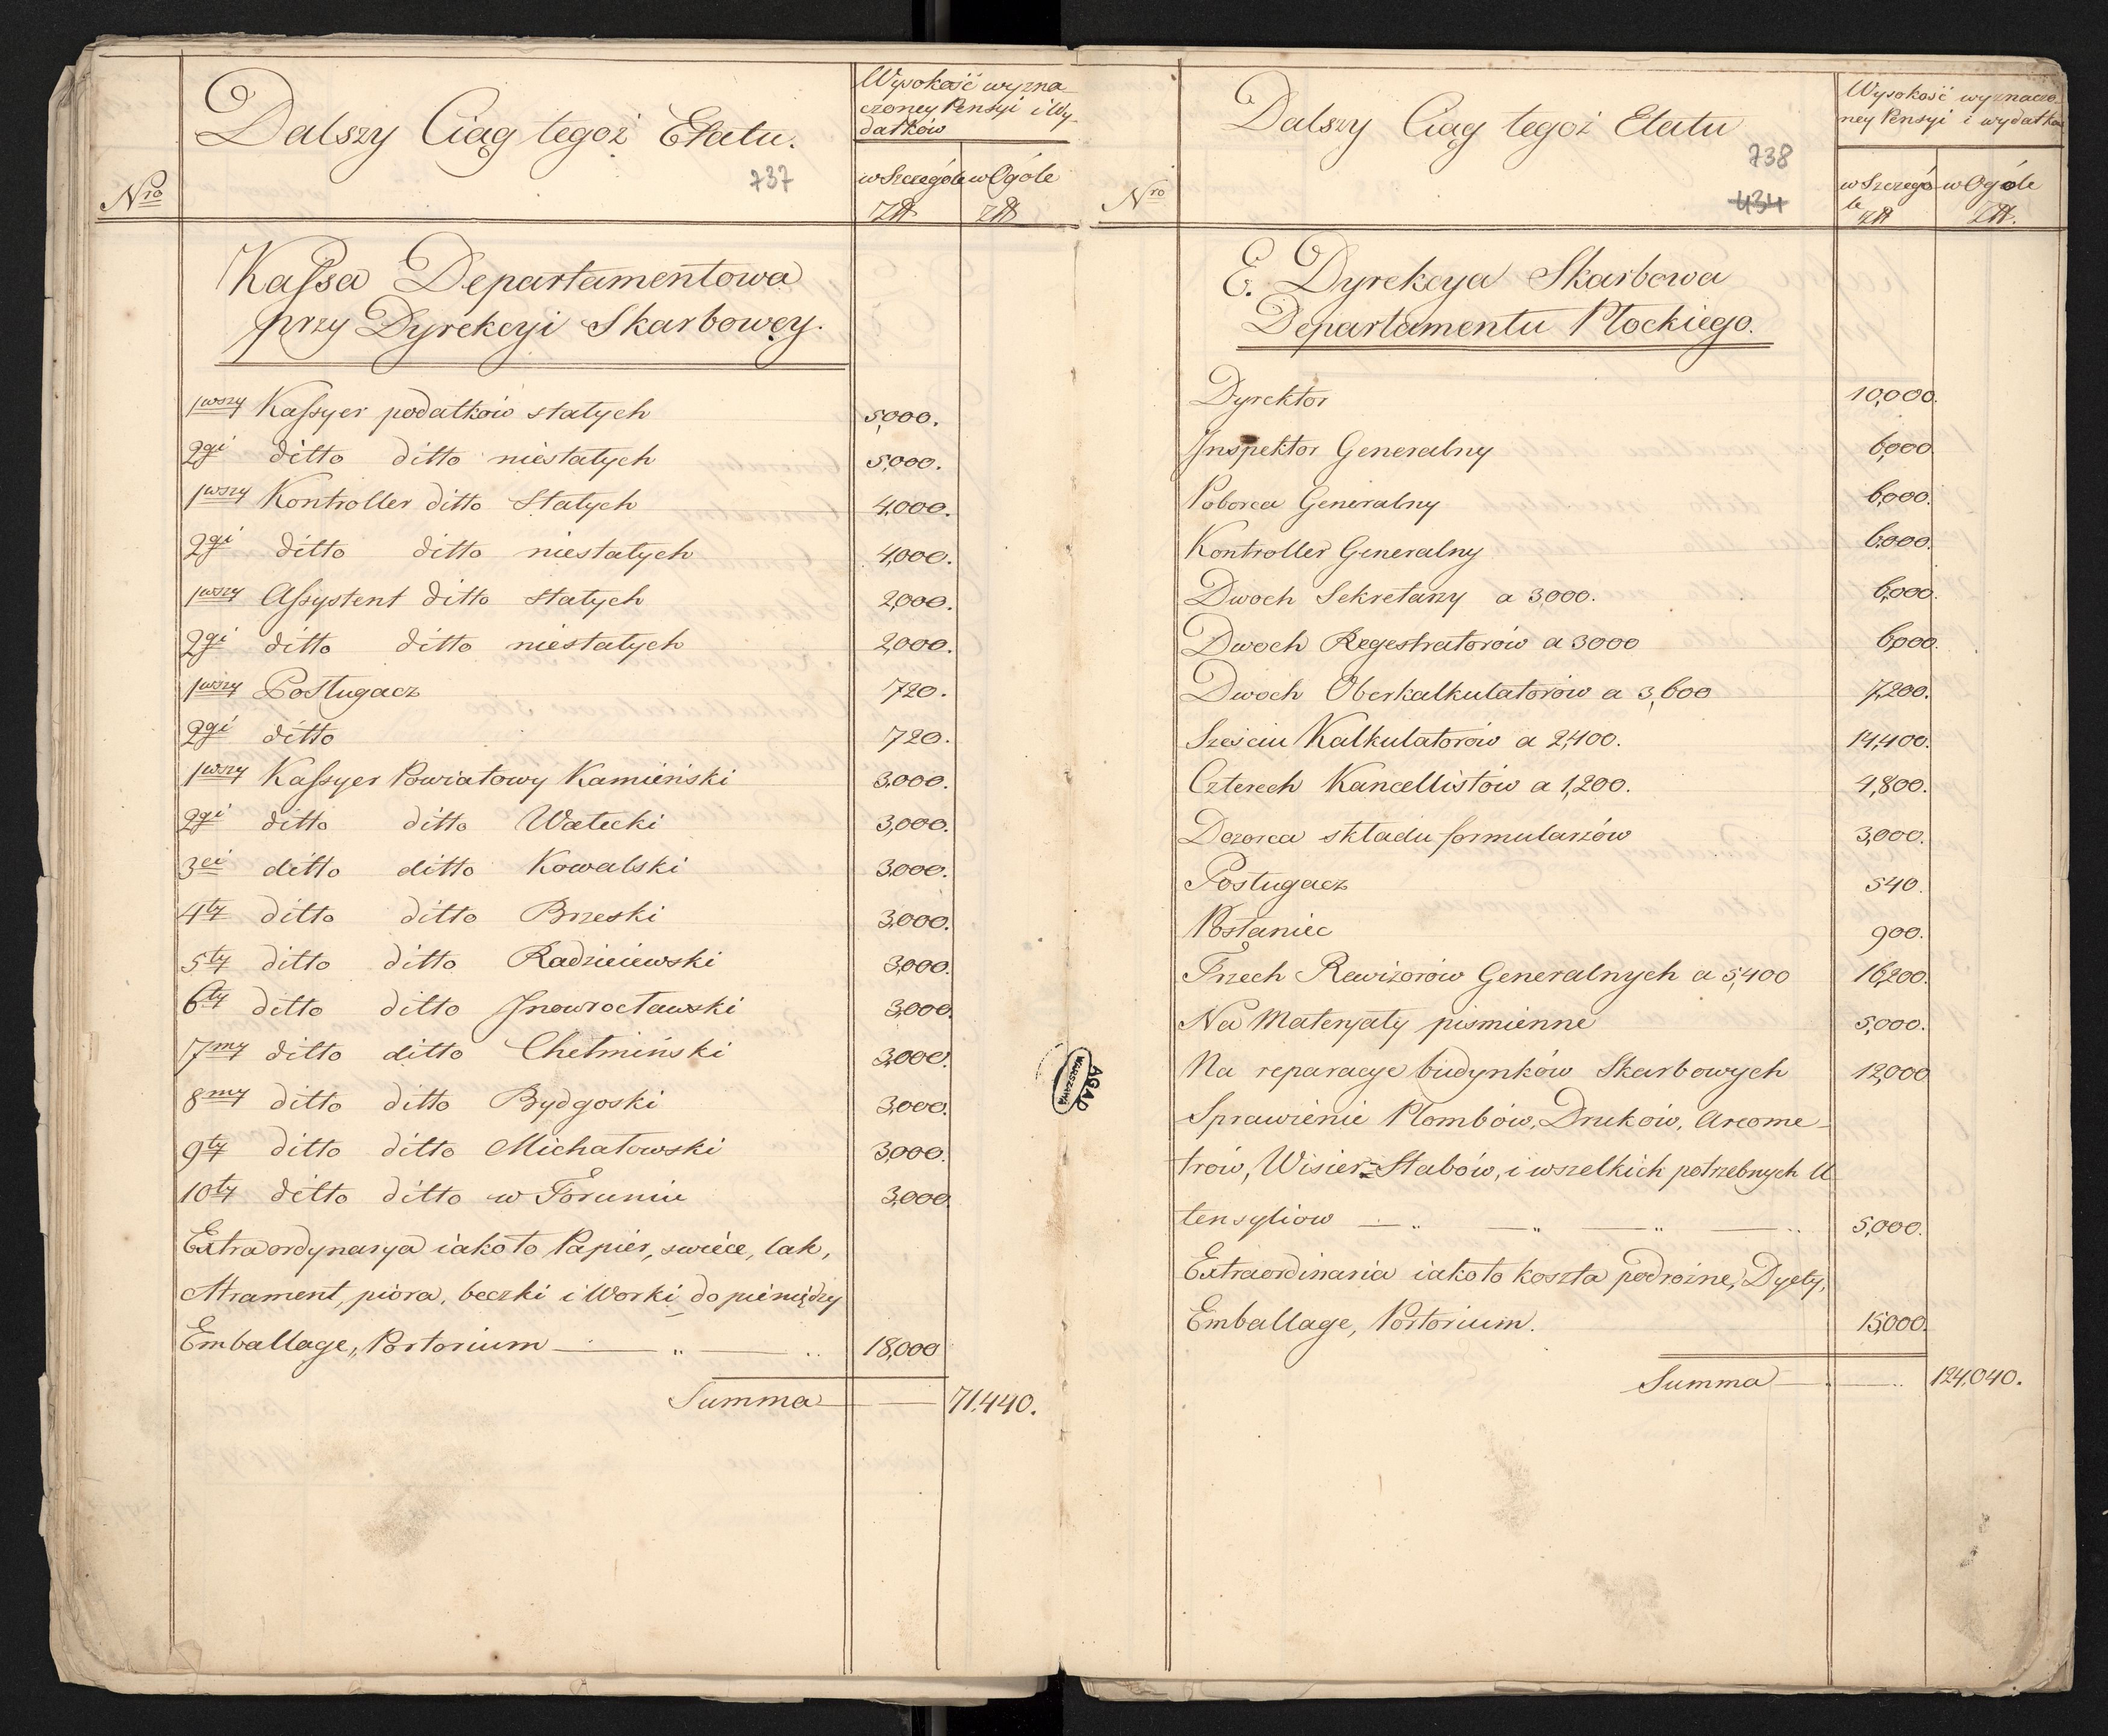 Dalszy Ciąg tegoż Etatu.
737
Nro
Wysokość wyzna-
czoney Pensyi i Wy-
datków
w Szczególe w Ogóle
Złł Złł
Kassa Departamentowa
przy Dyrekcyi Skarbowey.
1wszy Kassyer podatków stałych 5,000.
2gi ditto ditto niestałych 5,000.
1wszy Kontroller ditto Stałych 4,000.
2gi ditto ditto niestałych 4,000.
1wszy Assystent ditto stałych 2,000.
2gi ditto ditto niestałych 2,000.
1wszy Posługacz 720.
2gi ditto 720.
1wszy Kassyer Powiatowy Kamiński 3,000.
2gi ditto ditto Wałecki 3,000.
3ci ditto ditto Kowalski 3,000.
4ty ditto ditto Brzeski 3,000.
5ty ditto ditto Radzieiewski 3,000.
6ty ditto ditto Jnowrocławski 3,000.
7my ditto ditto Chełmiński 3,000.
8my ditto ditto Bydgoski 3,000.
9ty ditto ditto Michałowski 3,000.
10ty ditto ditto w Toruniu 3,000.
Extraordynarya iako to Papier, swiéce, lak,
Atrament, pióra, beczki i Worki do pieniędzy
Emballage, Portorium — „ — „ 18,000
Summa — — 71,440.
Dalszy Ciąg tegoż Etatu
738
434
Nro
Wysokość wyznaczo-
ney Pensyi i wydatków
w Szczegó- w Ogóle
le
Złł Złł.
E. Dyrekcya Skarbowa
Departamentu Płockiego.
Dyrektor 10,000.
Jnspektor Generalny 6,000.
Poborca Generalny 6,000.
Kontroller Generalny 6,000.
Dwoch Sekretarzy a 3,000. 6,000.
Dwoch Regestratorów a 3000 6,000.
Dwoch Oberkalkulatorów a 3,600 7,200.
Sześciu Kalkulatorów a 2,400. 14,400.
Czterech Kancellistów a 1,200. 4,800.
Dozorca składu formularzów 3,000.
Posługacz 540.
Posłaniec 900.
Trzech Rewizorów Generalnych a 5,400 16,200.
Na Materyały pismienne 5,000.
Na reparacye budynków Skarbowych 12,000
Sprawienie Plombów, Druków, Areome-
trów, Wisier-Stabów, i wszelkich potrzebnych U-
tensyliow — „ — „ — „ — „ 5,000.
Extraordinaria iako to koszta podrożne, Dyety,
Emballage, Portorium. 15,000.
Summa — — „ 124,040.
AGAD
WARSZAWA